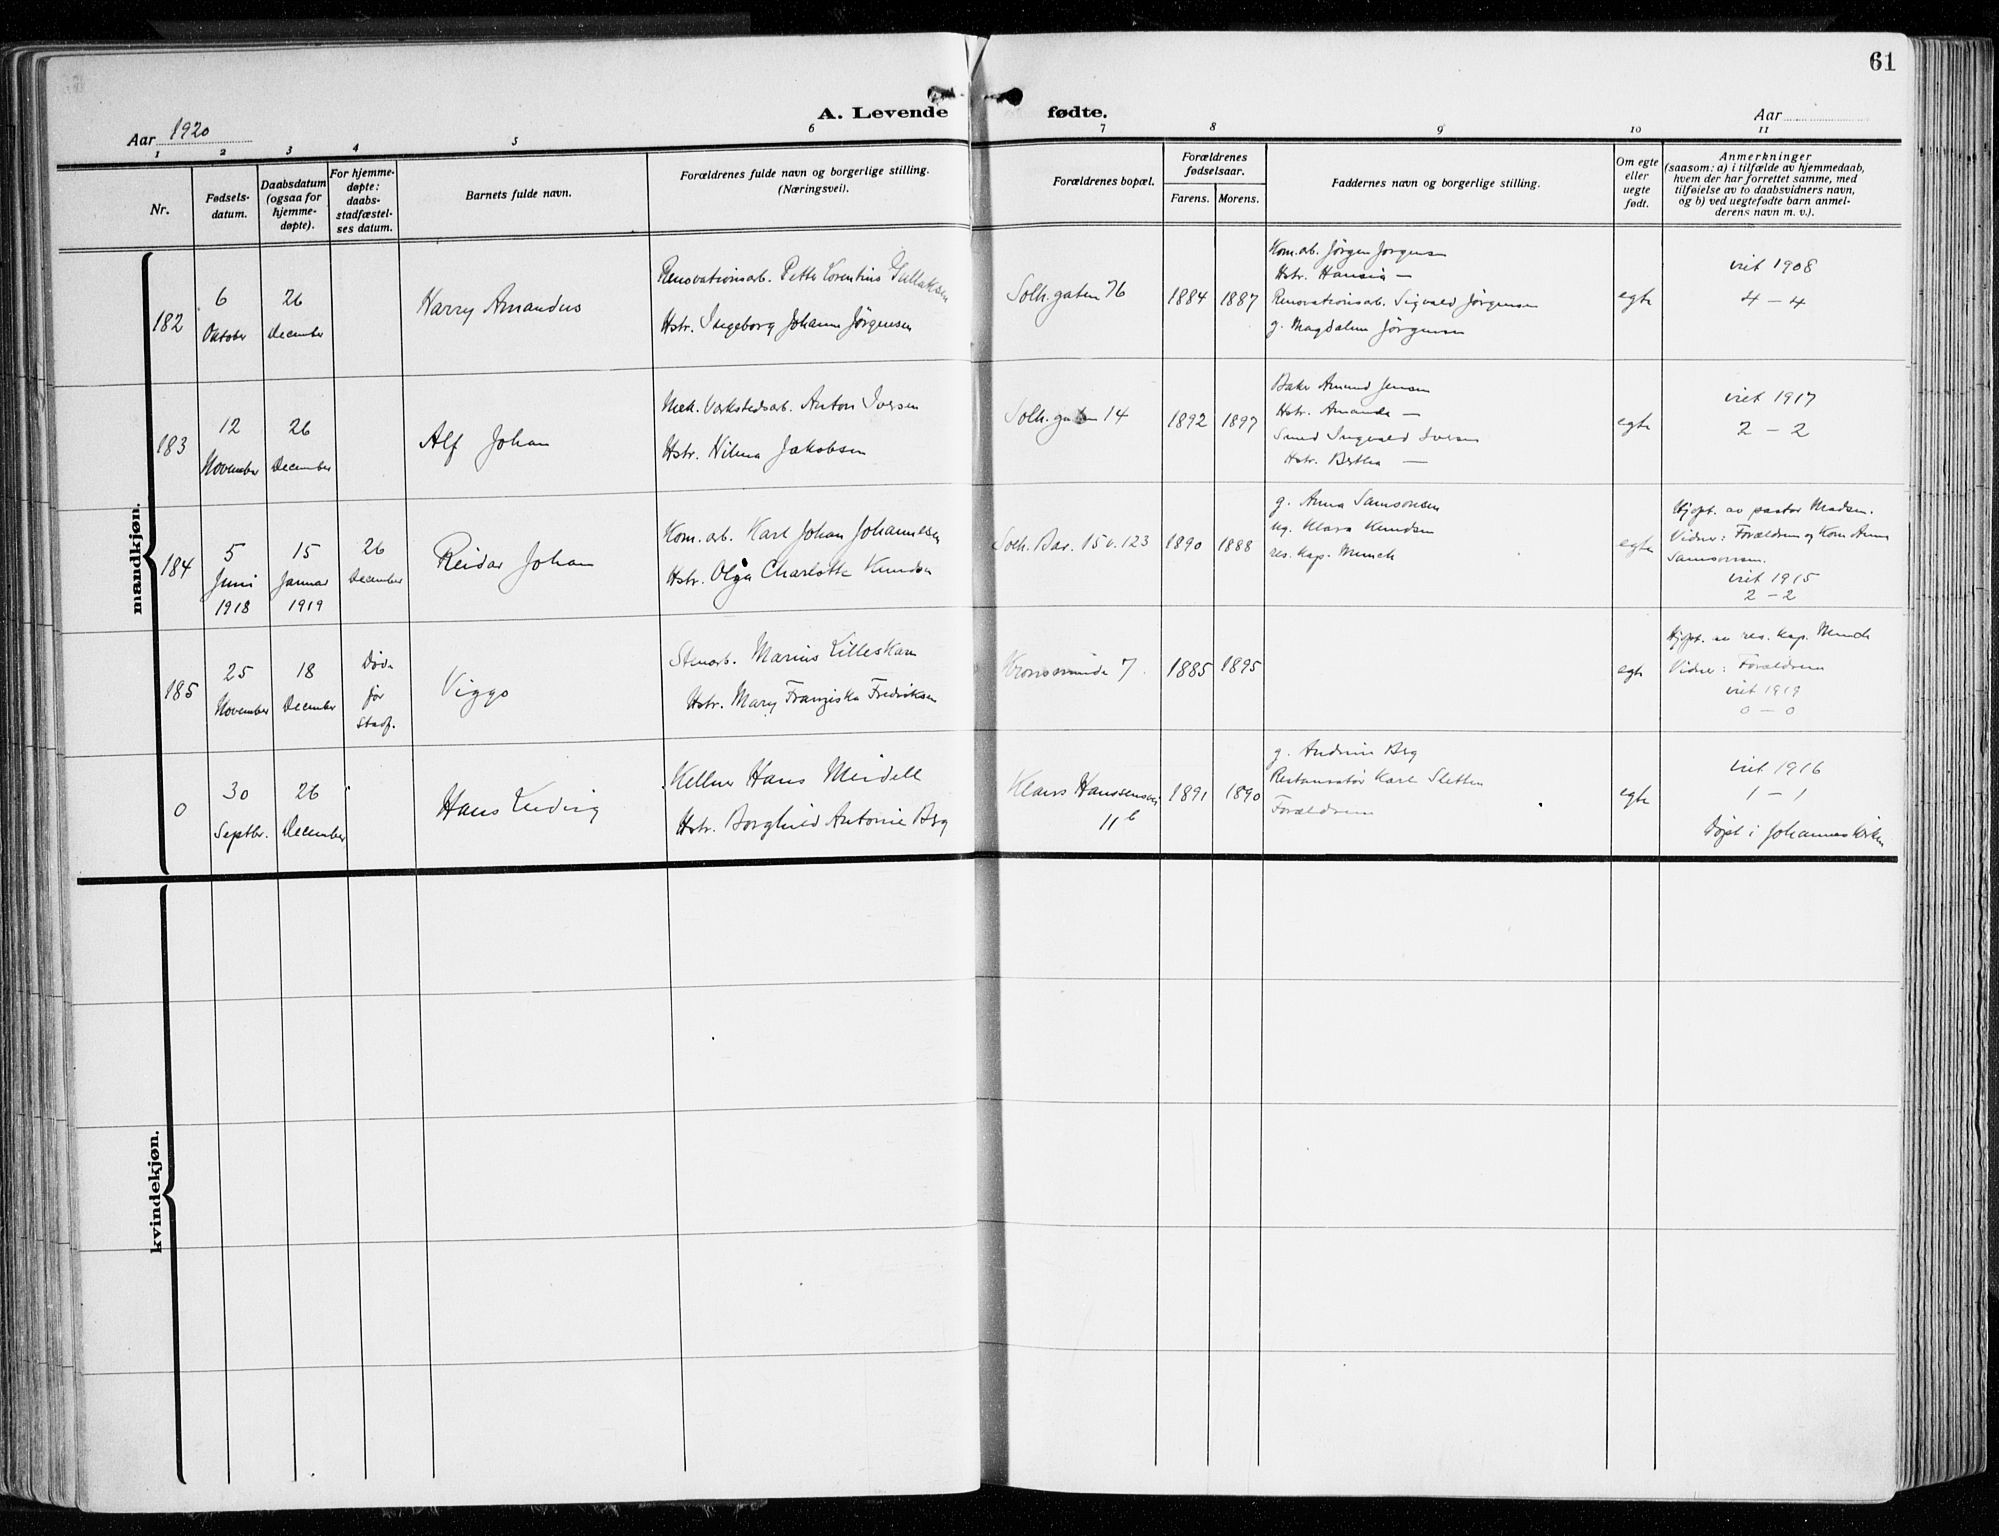 61
A. Levende fødte.
Aar 1920
Aar
1 2 3 4 5 6 7 8 9 10 11
Nr.
Fødsels-
datum.
Daabsdatum
(ogsaa for
hjemme-
døpte).
For hjemme-
døpte:
daabs-
stadfæstel-
ses datum.
Barnets fulde navn.
Forældrenes fulde navn og borgerlige stilling.
(Næringsvei).
Forældrenes bopæl.
Forældrenes
fødselsaar.
Farens. Morens.
Faddernes navn og borgerlige stilling.
Om egte
eller
uegte
født.
Anmerkninger
(saasom: a) i tilfælde av hjemmedaab,
hvem der har forrettet samme, med
tilføielse av to daabsvidners navn,
og b) ved uegtefødte barn anmel-
derens navn m. v.).
mandkjøn.
182
6
Oktober
26
December
Harry Amandus
Renovationsarb. Petter Lorentius Gullaksen
Hstr. Ingeborg Johanne Jørgensen
Solh.gaten 76
1884
1887
Kom.arb. Jørgen Jørgensen
Hstr. Hansine —
Renovationsarb. Sigvald Jørgensen
g. Magdalene Jørgensen
egte
viet 1908
4 – 4
183
12
November
26
December
Alf Johan
Mek. Verkstedsarb. Anton Iversen
Hstr. Vilma Jakobsen
Solh.gaten 14
1892
1897
Baker Amund Jensen
Hstr. Amanda —
Smed Ingvald Iversen
Hstr. Bertha —
egte
viet 1917
2 – 2
184
5
Juni
1918
15
Januar
1919
26
December
Reidar Johan
Kom. arb. Karl Johan Johannesen
Hstr. Olga Charlotte Knudsen
Solh. Bar. 15 v. 123
1890
1888
g. Anna Samsonsen
ug. Klara Knudsen
res. kap. Munch
egte
Hjdpt. av pastor Madsen.
Vidner: Forældrene og Kone Anna
Samsonsen.
viet 1915
2 – 2
185
25
November
18
December
Døde
før
Stadf.
Viggo
Stenarb. Marius Lilleskare
Hstr. Mary Franziska Fredriksen
Kronsminde 7
1885
1895
egte
Hjdpt. av res. kap. Munch
Vidner: Forældrene
viet 1919
0 – 0
0
30
Septbr.
26
December
Hans Ludvig
Kellner Hans Meidell
Hstr. Borghild Antonie Berg
Klaus Hanssensvei
11 b
1891
1890
g. Andrine Berg
Restauratør Karl Sletten
Forældrene
egte
viet 1916
1 – 1
Døpt i Johanneskirken
kvindekjøn.